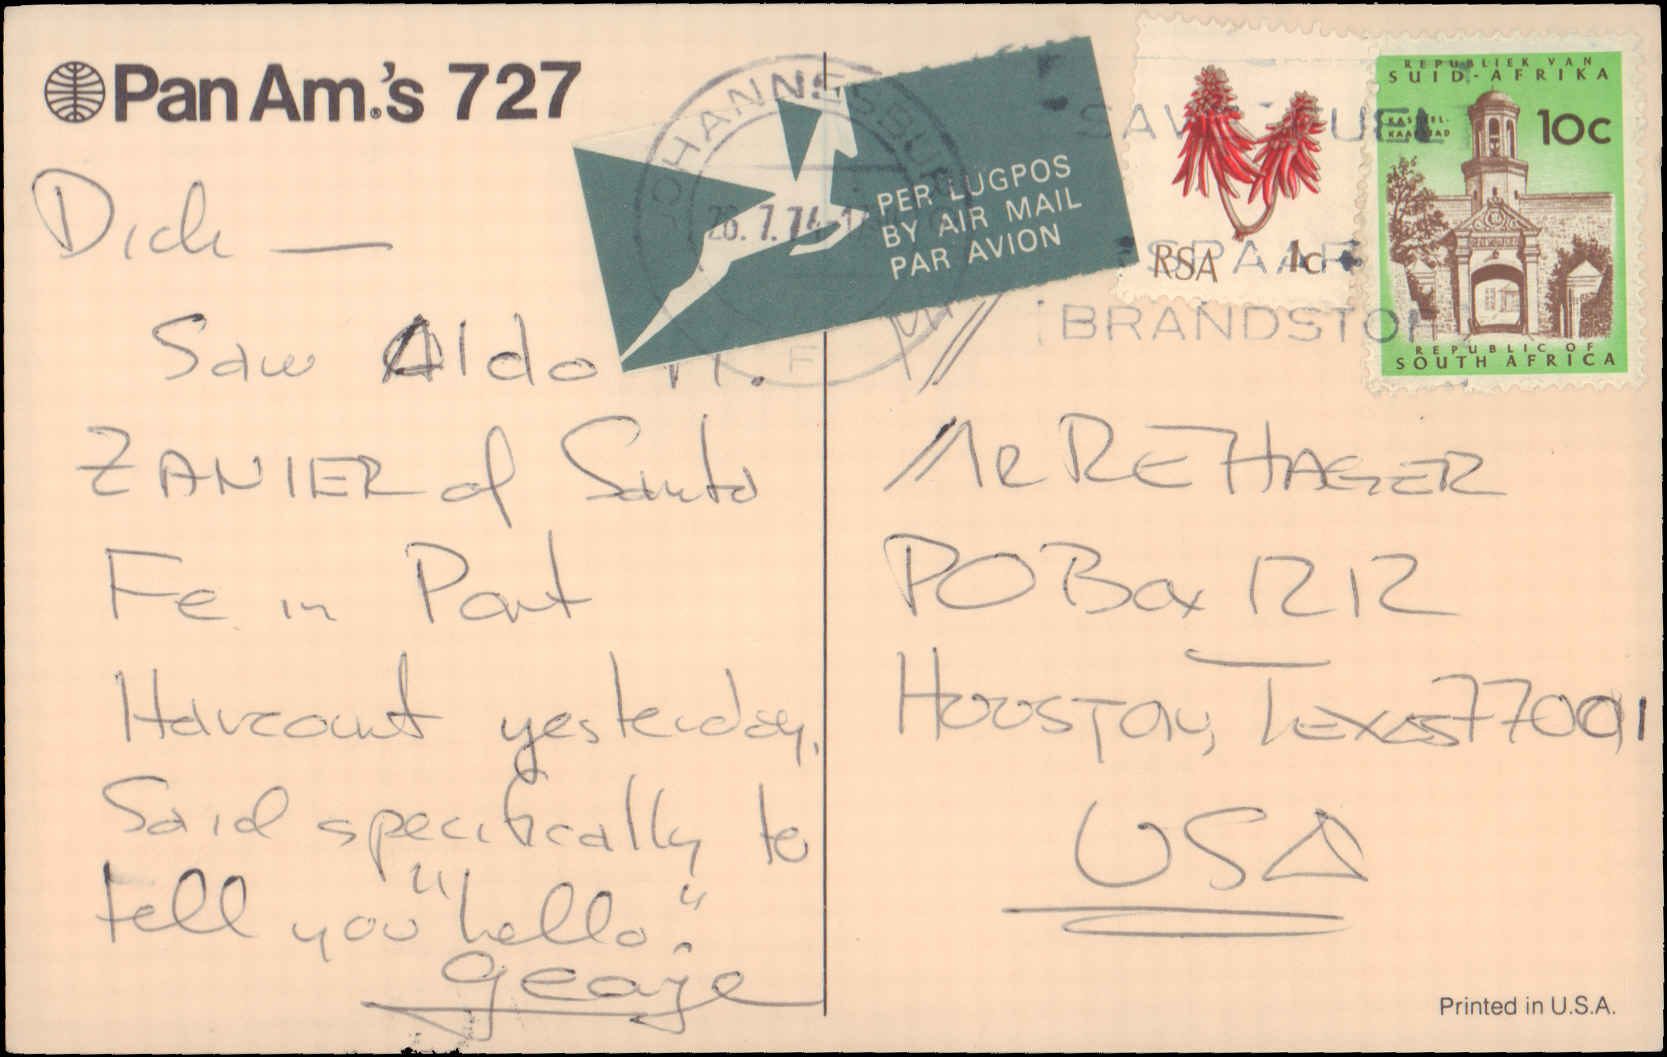 Pan Am.'s 727
Dick —
Saw Aldo
ZANIER of Santa
Fe in Port
Harcourt yesterday.
Said specifically to
tell you "hello".
George
JOHANNESBURG
26.7.74
F
PER LUGPOS
BY AIR MAIL
PAR AVION
SAVE FUEL
SPAAR
BRANDSTOF
RSA 1c
REPUBLIEK VAN
SUID-AFRIKA
KASTEEL-
KAAPSTAD
10c
REPUBLIC OF
SOUTH AFRICA
MR RE HAGER
PO Box 1212
HOUSTON, Texas 77001
USA
Printed in U.S.A.